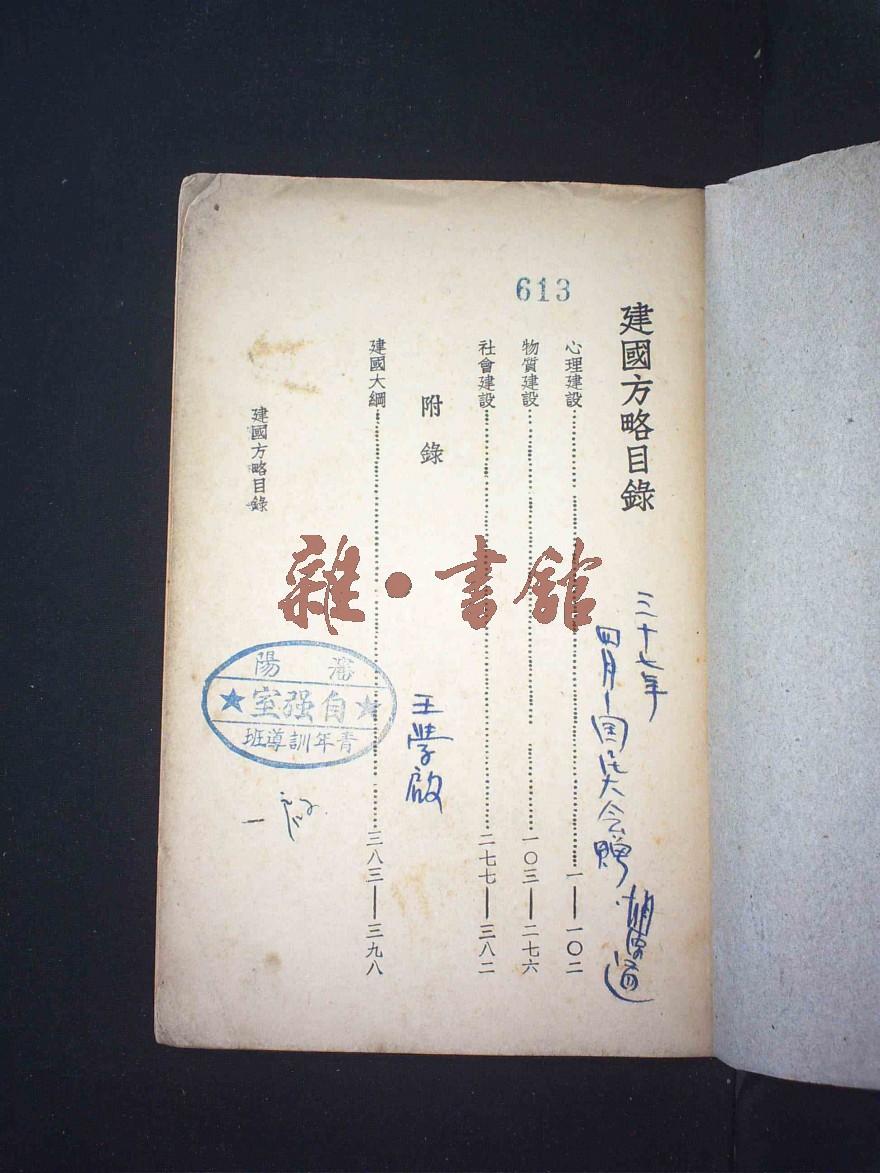 613
建國方略目錄
心理建設……一——一〇二
物質建設……一〇三——二七六
社會建設……二七七——三八二
附錄
建國大綱……三八三——三九八
建國方略目錄
三十七年
四月國民大会贈
王學啟
瀋陽
★自强室★
青年訓導班
雜·書館
一